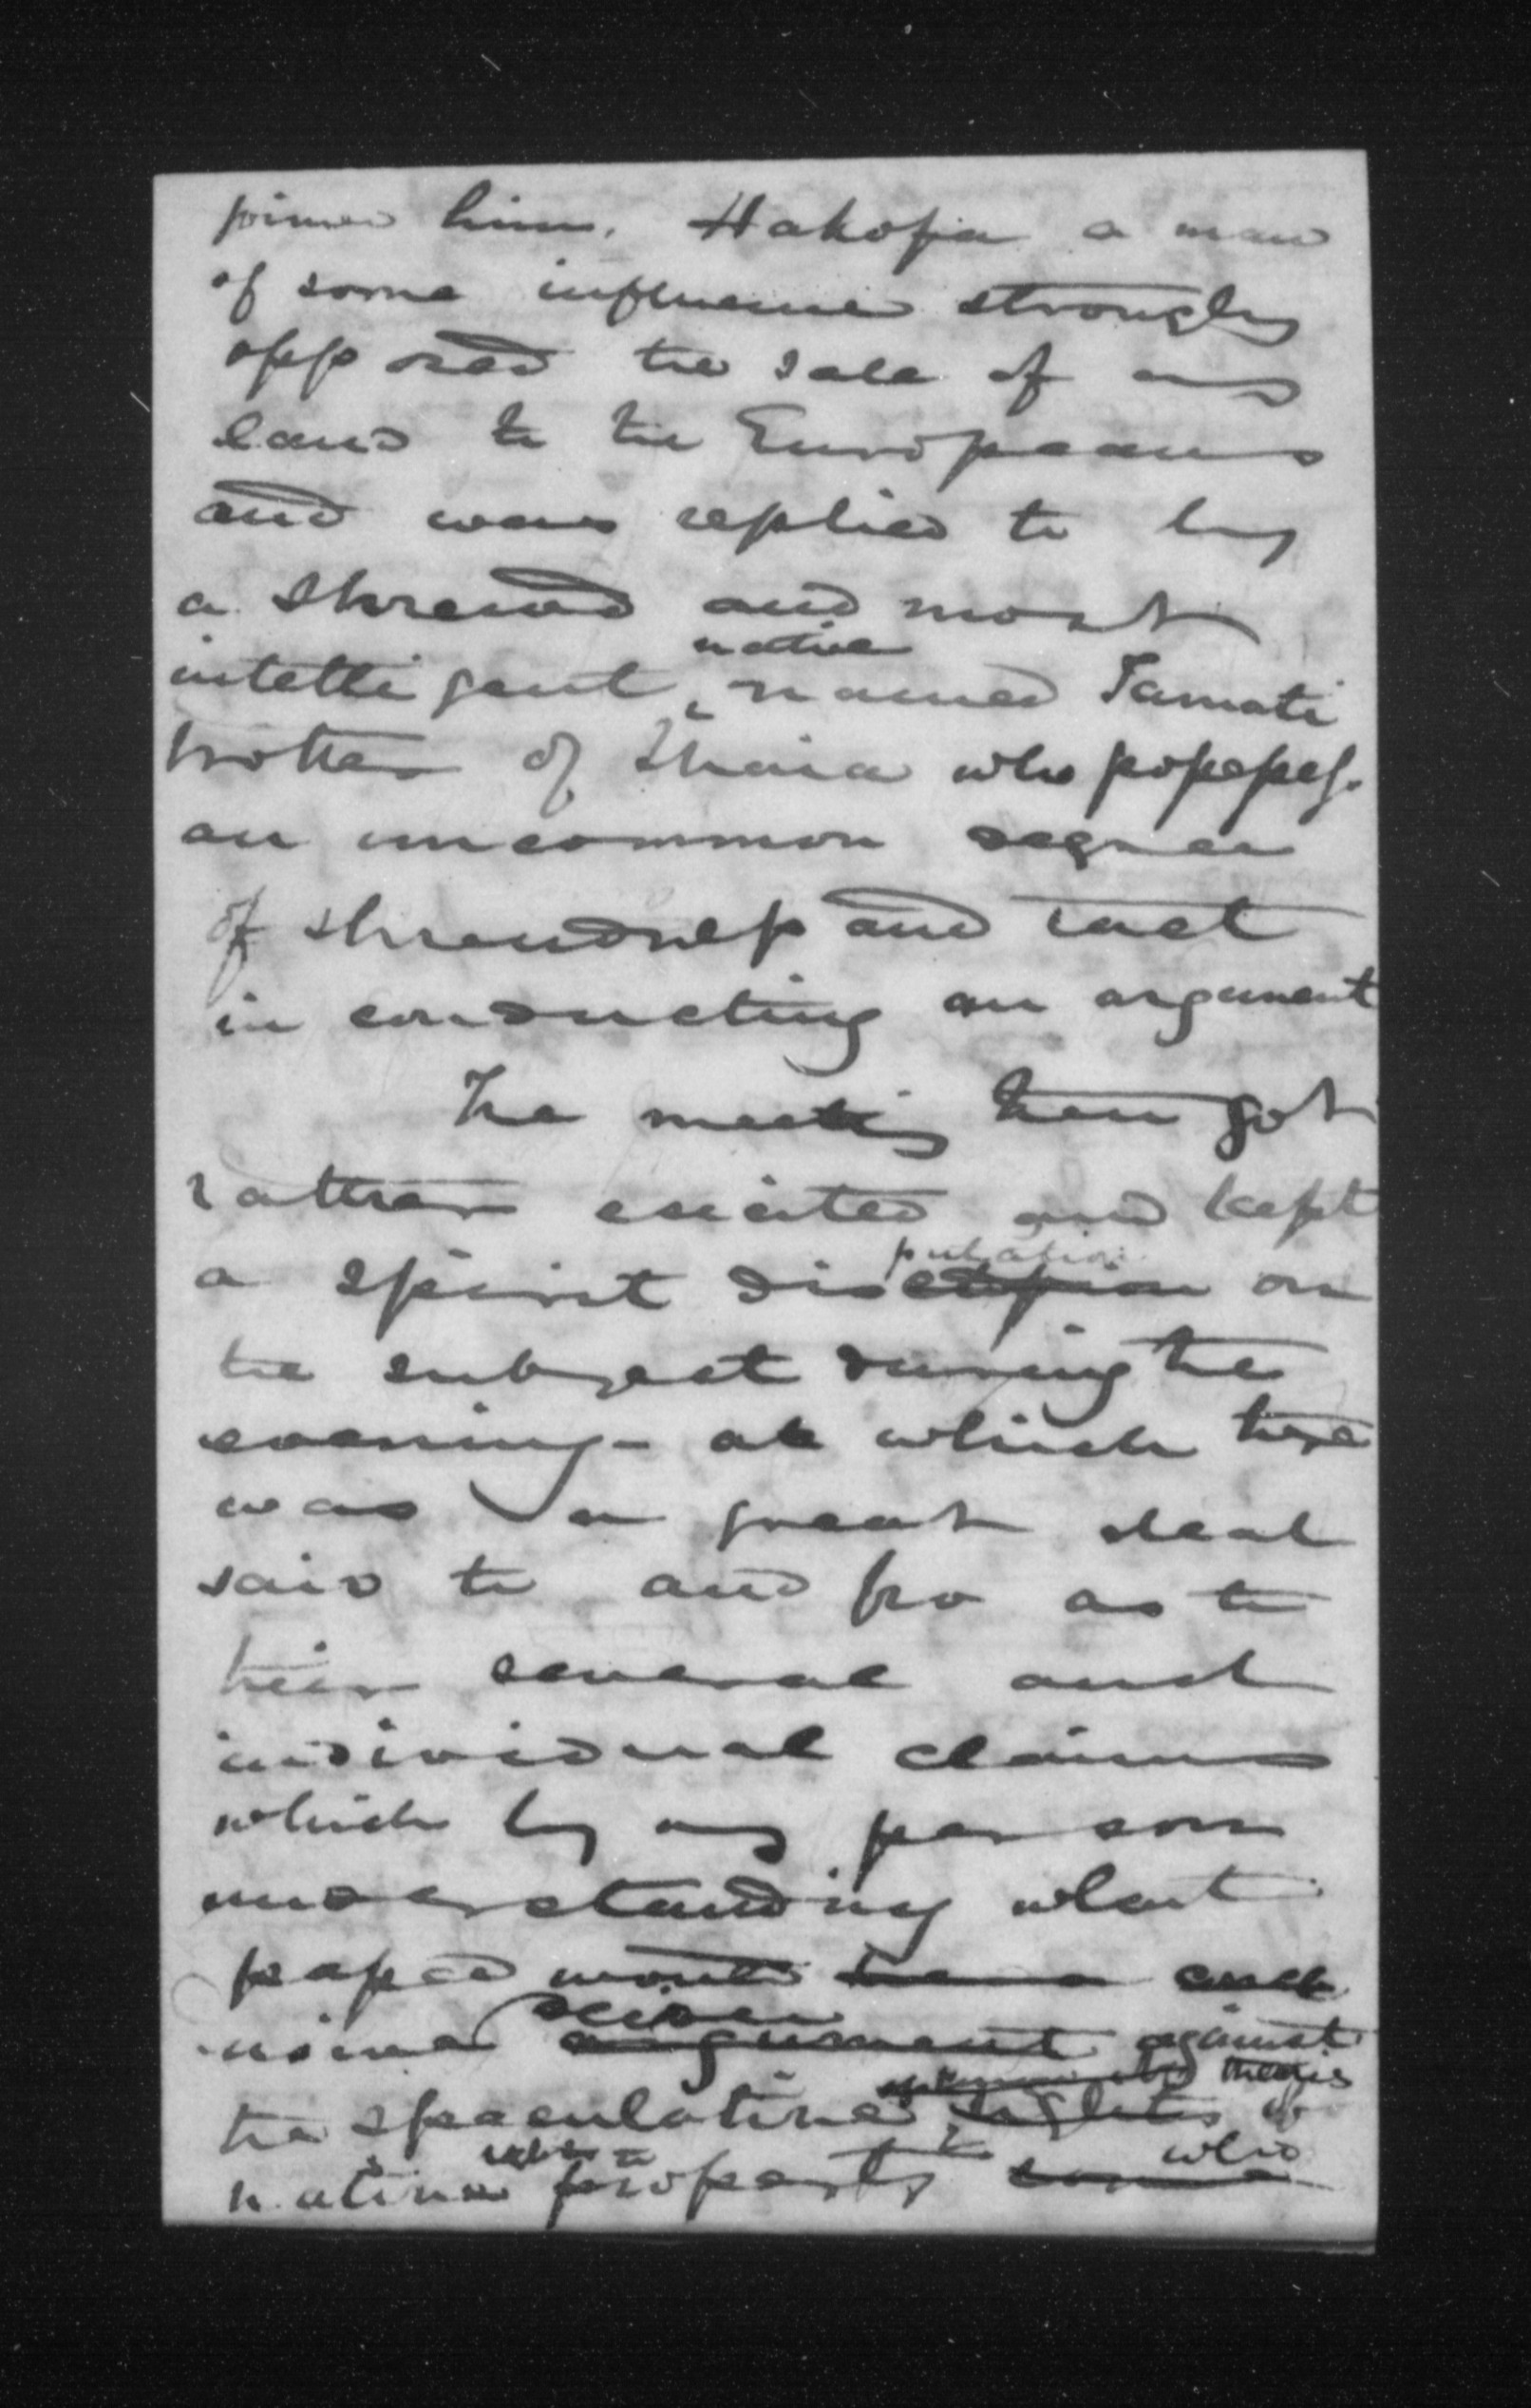 joined him. Hakopa a man
of some influence strongly
opposed the sale of any
land to the Europeans
and was replied to by
a shrewd and most
native
intelligent named Tamati
brother of Ihaia who possess.
an uncommon degree
of shrewdness and tact
in conducting an argument
The meeting then got
rather excited and kept
putation
a spirit discussion on
the subject during the
evening - at which there
was a great deal
said to and fro as to
their several and
individual claims
which by any person
understanding what
passed would have
decisive
argument against
theories
the speculative rights of
rights to who
native property some